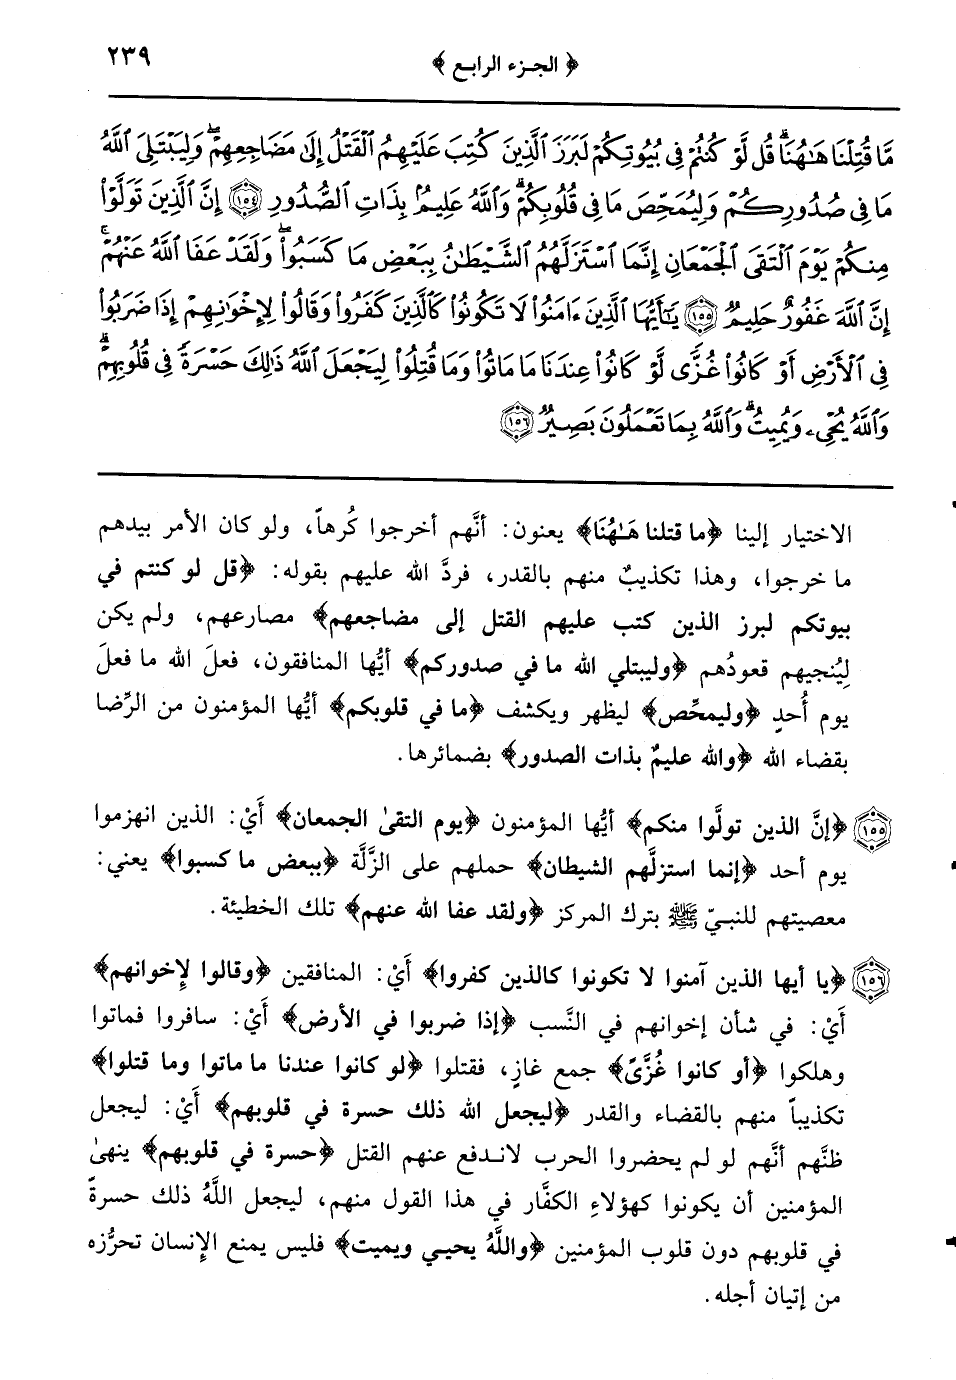 ﴿ الجزء الرابع ﴾
٢٣٩
مَّا قُتِلْنَا هَٰهُنَا ۗ قُل لَّوْ كُنتُمْ فِي بُيُوتِكُمْ لَبَرَزَ ٱلَّذِينَ كُتِبَ عَلَيْهِمُ ٱلْقَتْلُ إِلَىٰ مَضَاجِعِهِمْ ۖ وَلِيَبْتَلِيَ ٱللَّهُ
مَا فِي صُدُورِكُمْ وَلِيُمَحِّصَ مَا فِي قُلُوبِكُمْ ۗ وَٱللَّهُ عَلِيمٌۢ بِذَاتِ ٱلصُّدُورِ ﴿١٥٤﴾ إِنَّ ٱلَّذِينَ تَوَلَّوْا۟
مِنكُمْ يَوْمَ ٱلْتَقَى ٱلْجَمْعَانِ إِنَّمَا ٱسْتَزَلَّهُمُ ٱلشَّيْطَٰنُ بِبَعْضِ مَا كَسَبُوا۟ ۖ وَلَقَدْ عَفَا ٱللَّهُ عَنْهُمْ ۗ
إِنَّ ٱللَّهَ غَفُورٌ حَلِيمٌ ﴿١٥٥﴾ يَٰٓأَيُّهَا ٱلَّذِينَ ءَامَنُوا۟ لَا تَكُونُوا۟ كَٱلَّذِينَ كَفَرُوا۟ وَقَالُوا۟ لِإِخْوَٰنِهِمْ إِذَا ضَرَبُوا۟
فِي ٱلْأَرْضِ أَوْ كَانُوا۟ غُزًّى لَّوْ كَانُوا۟ عِندَنَا مَا مَاتُوا۟ وَمَا قُتِلُوا۟ لِيَجْعَلَ ٱللَّهُ ذَٰلِكَ حَسْرَةً فِي قُلُوبِهِمْ ۗ
وَٱللَّهُ يُحْيِۦ وَيُمِيتُ ۗ وَٱللَّهُ بِمَا تَعْمَلُونَ بَصِيرٌ ﴿١٥٦﴾
الاختيار إلينا ﴿ما قتلنا هَٰهُنَا﴾ يعنون: أنَّهم أخرجوا كُرهاً، ولو كان الأمر بيدهم
ما خرجوا، وهذا تكذيبٌ منهم بالقدر، فردَّ الله عليهم بقوله: ﴿قل لو كنتم في
بيوتكم لبرز الذين كتب عليهم القتل إلى مضاجعهم﴾ مصارعهم، ولم يكن
لِيُنجيهم قعودُهم ﴿وليبتلي الله ما في صدوركم﴾ أيُّها المنافقون، فعلَ الله ما فعلَ
يوم أُحدٍ ﴿وليمحِّص﴾ ليظهر ويكشف ﴿ما في قلوبكم﴾ أيُّها المؤمنون من الرِّضا
بقضاء الله ﴿والله عليمٌ بذات الصدور﴾ بضمائرها.
﴿١٥٥﴾ ﴿إنَّ الذين تولَّوا منكم﴾ أيُّها المؤمنون ﴿يوم التقىٰ الجمعان﴾ أَيْ: الذين انهزموا
يوم أحد ﴿إنما استزلَّهم الشيطان﴾ حملهم على الزَّلَّة ﴿ببعض ما كسبوا﴾ يعني:
معصيتهم للنبيّ ﷺ بترك المركز ﴿ولقد عفا الله عنهم﴾ تلك الخطيئة.
﴿١٥٦﴾ ﴿يا أيها الذين آمنوا لا تكونوا كالذين كفروا﴾ أَيْ: المنافقين ﴿وقالوا لإِخوانهم﴾
أَيْ: في شأن إخوانهم في النَّسب ﴿إذا ضربوا في الأرض﴾ أَيْ: سافروا فماتوا
وهلكوا ﴿أو كانوا غُزَّىً﴾ جمع غازٍ، فقتلوا ﴿لو كانوا عندنا ما ماتوا وما قتلوا﴾
تكذيباً منهم بالقضاء والقدر ﴿ليجعل الله ذلك حسرة في قلوبهم﴾ أَيْ: ليجعل
ظنَّهم أنَّهم لو لم يحضروا الحرب لاندفع عنهم القتل ﴿حسرة في قلوبهم﴾ ينهىٰ
المؤمنين أن يكونوا كهؤلاءِ الكفَّار في هذا القول منهم، ليجعل اللَّهُ ذلك حسرةً
في قلوبهم دون قلوب المؤمنين ﴿واللَّهُ يحيي ويميت﴾ فليس يمنع الإِنسان تحرُّزه
من إتيان أجله.